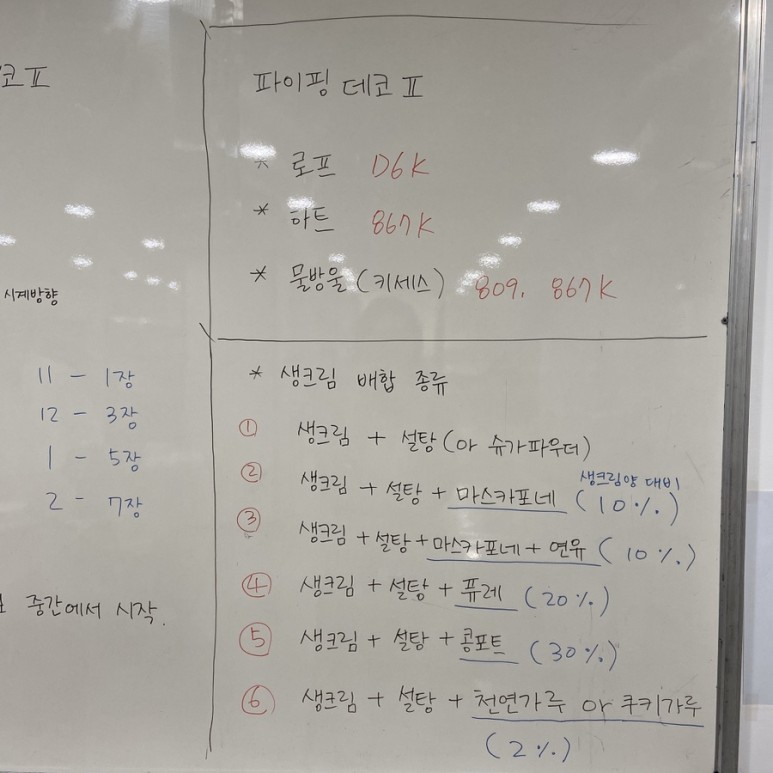 코 Ⅱ
시계방향
11 - 1장
12 - 3장
1 - 5장
2 - 7장
중간에서 시작.
파이핑 데코 Ⅱ
* 로프 D6K
* 하트 867K
* 물방울 (키세스) 809. 867K
* 생크림 배합 종류
① 생크림 + 설탕 (or 슈가파우더)
생크림양 대비
② 생크림 + 설탕 + 마스카포네 (10%)
③ 생크림 + 설탕 + 마스카포네 + 연유 (10%)
④ 생크림 + 설탕 + 퓨레 (20%)
⑤ 생크림 + 설탕 + 콩포트 (30%)
⑥ 생크림 + 설탕 + 천연가루 or 쿠키가루
(2%)